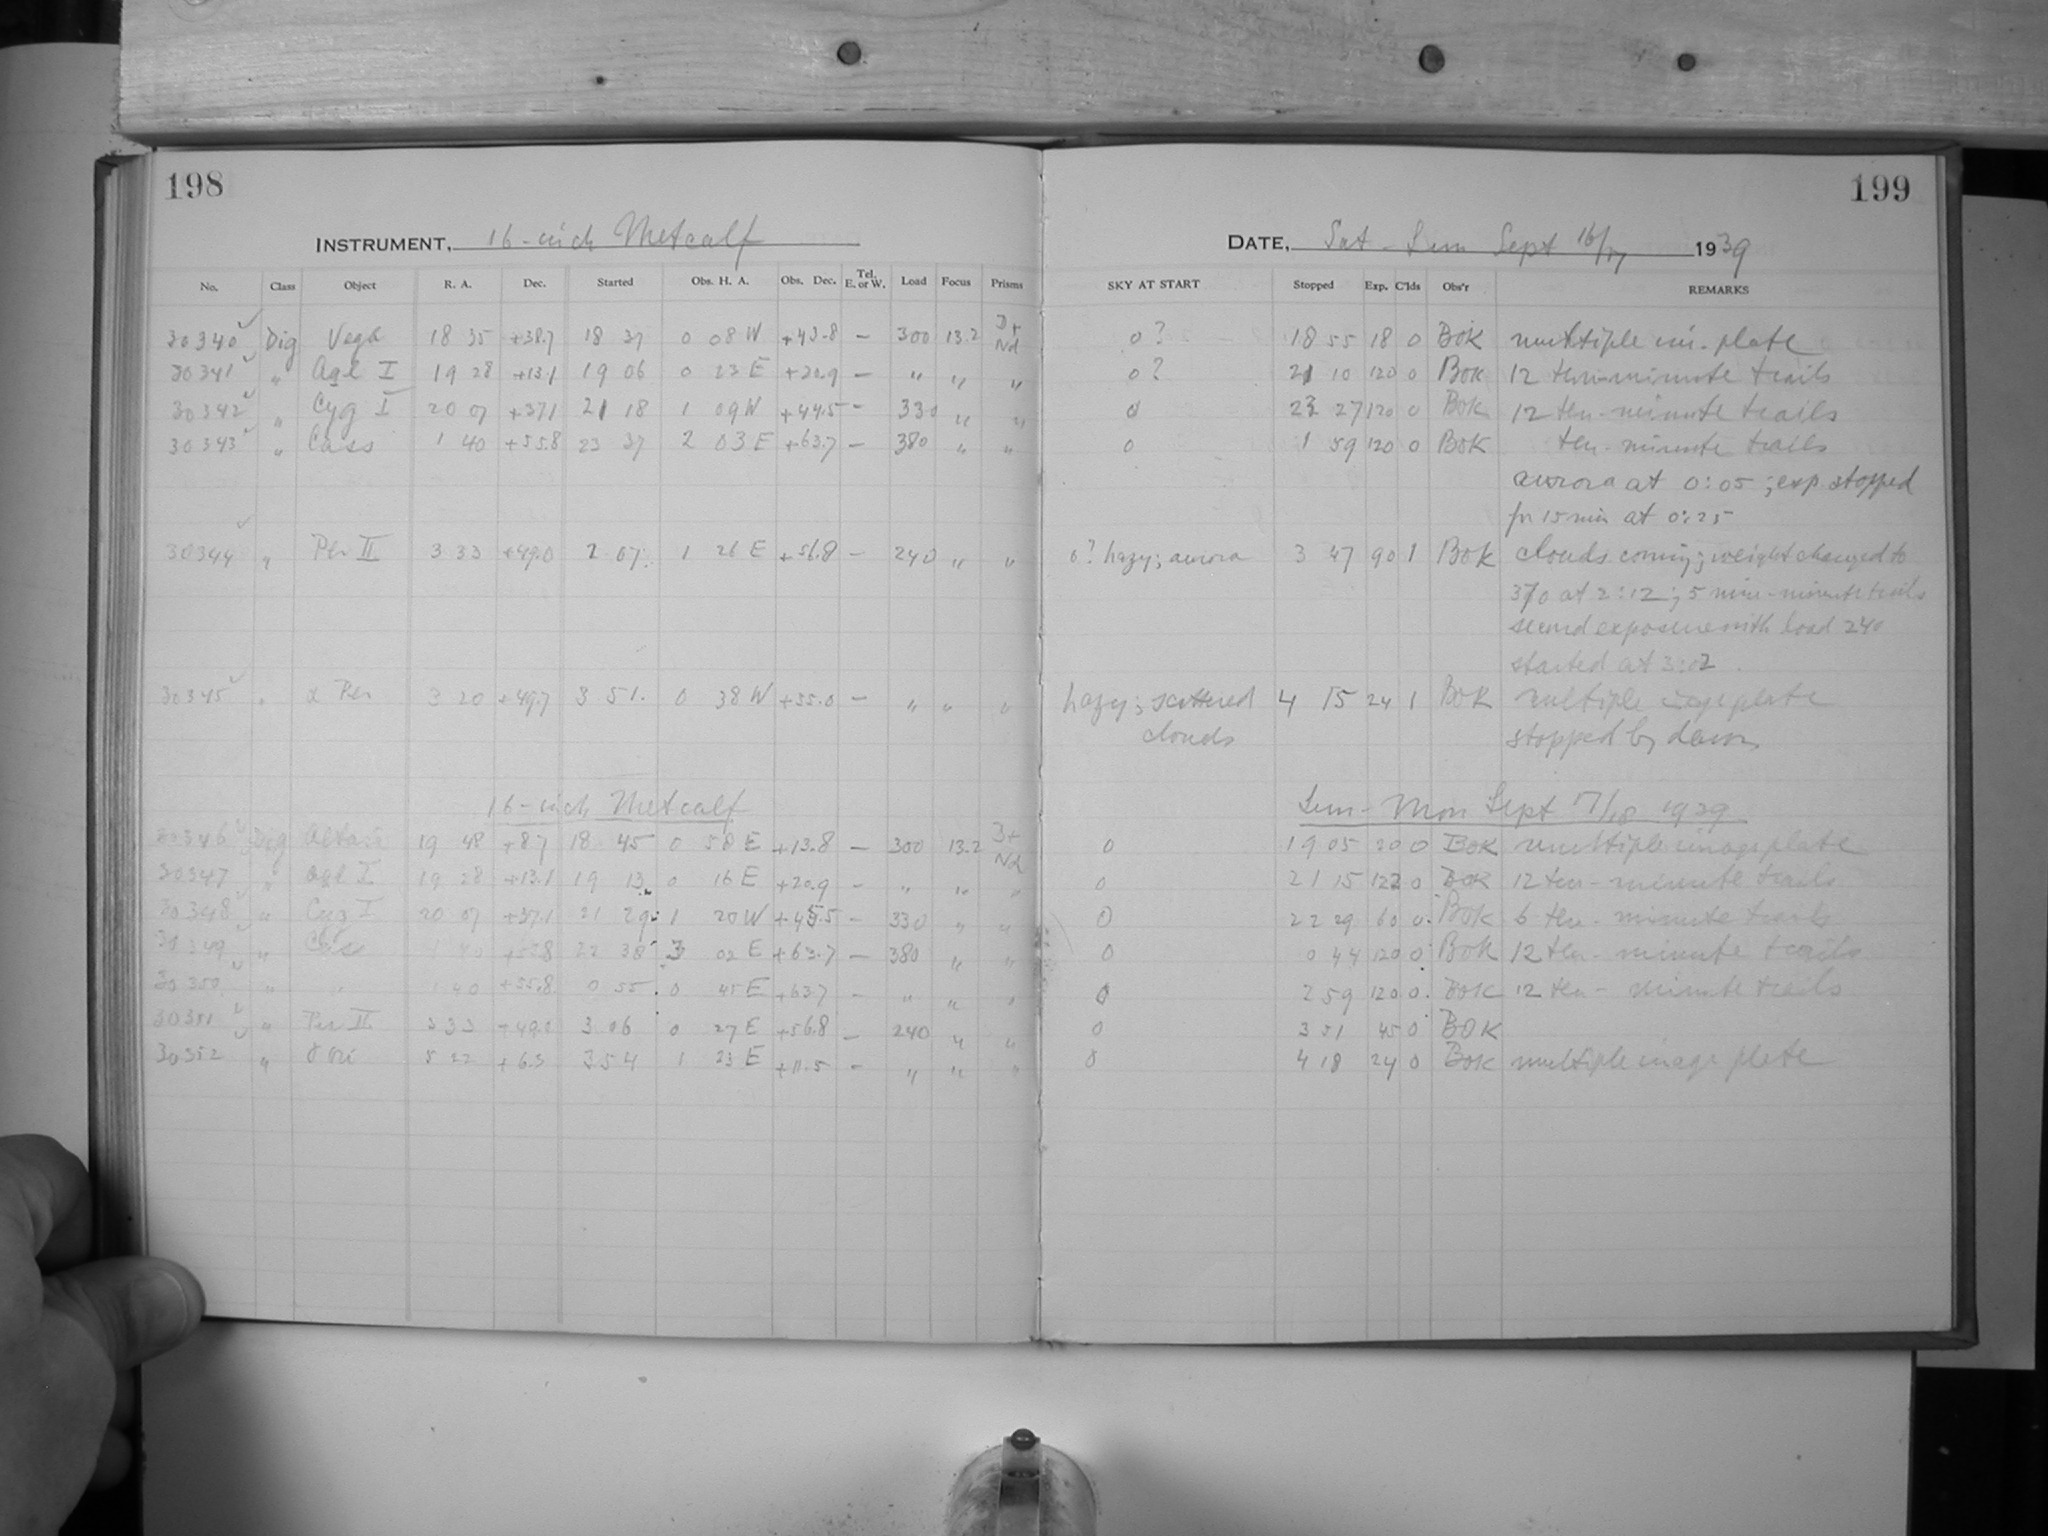 198
INSTRUMENT, 16-inch Metcalf
No. Class Object R. A. Dec. Started Obs. H. A. Obs. Dec. Tel. E. or W. Load Focus Prisms
30340 Dig Vega 18 35 +38.7 18 37 0 08 W +43.8 — 300 13.2 Nd
30341 " Aql I 19 28 +13.1 19 06 0 23 E +20.9 — " " "
30342 " Cyg I 20 07 +37.1 21 18 1 09 W +44.5 — 330 " "
30343 " Cass 1 40 +55.8 23 37 2 03 E +63.7 — 380 " "
30344 " Per II 3 33 +49.0 2 07 1 26 E +56.8 — 240 " "
30345 " α Per 3 20 +49.7 3 51 0 38 W +55.0 — " " "
16-inch Metcalf
30346 Dig Altair 19 48 +8.7 18 45 0 58 E +13.8 — 300 13.2 Nd
30347 " Aql I 19 28 +13.1 19 13 0 16 E +20.9 — " " "
30348 " Cyg I 20 07 +37.1 21 29 1 20 W +45.5 — 330 " "
30349 " Cass 1 40 +55.8 22 38 3 02 E +63.7 — 380 " "
30350 " " 1 40 +55.8 0 55 0 45 E +63.7 — " " "
30351 " Per II 3 33 +49.0 3 06 0 27 E +56.8 — 240 " "
30352 " Ori 5 22 +6.3 3 54 1 23 E +11.5 — " " "
199
DATE, Sat - Sun Sept 16/17 1939
SKY AT START Stopped Exp. C'lds Obs'r REMARKS
0? 18 55 18 0 BOK multiple im. plate
0? 21 10 120 0 BOK 12 ten-minute trails
0 23 27 120 0 BOK 12 ten-minute trails
0 1 59 120 0 BOK ten-minute trails
aurora at 0:05; exp stopped
for 15 min at 0:25
0? hazy; aurora 3 47 90 1 BOK clouds coming; weight changed to
370 at 2:12; 5 nine-minute trails
second exposure with load 240
started at 3:02.
hazy; scattered 4 15 24 1 BOK multiple image plate
clouds stopped by dawn
Sun - Mon Sept 17/18 1939
0 19 05 20 0 BOK multiple image plate
0 21 15 122 0 BOK 12 ten-minute trails
0 22 29 60 0 BOK 6 ten-minute trails
0 0 44 120 0 BOK 12 ten-minute trails
0 2 59 120 0 BOK 12 ten-minute trails
0 3 51 45 0 BOK
0 4 18 24 0 BOK multiple image plate